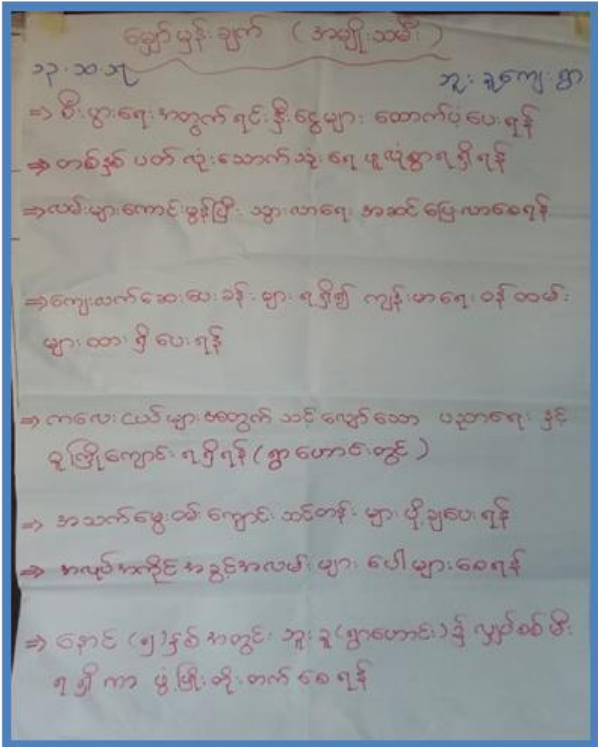 မျှော်မှန်းချက် (အမျိုးသမီး)
၁၃.၁၁.၁၇ ဘူးခူကျေးရွာ
⇒ စီးပွားရေးအတွက် ရင်းနှီးငွေများ ထောက်ပံ့ပေးရန်
⇒ တစ်နှစ်ပတ်လုံးသောက်သုံးရေ ဖူလုံစွာရရှိရန်
⇒ လမ်းများကောင်းမွန်ပြီး သွားလာရေး အဆင်ပြေလာစေရန်
⇒ ကျေးလက်ဆေးပေးခန်းများ ရရှိ၍ ကျန်းမာရေးဝန်ထမ်း
များထားရှိပေးရန်
⇒ ကလေးငယ်များအတွက် သင့်လျော်သော ပညာရေး နှင့်
မူကြိုကျောင်း ရရှိရန် (ရွာဟောင်းတွင်)
⇒ အသက်မွေးဝမ်းကျောင်း သင်တန်းများ ပို့ချပေးရန်
⇒ အလုပ်အကိုင်အခွင့်အလမ်းများ ပေါများစေရန်
⇒ နောင် (၅) နှစ်အတွင်း ဘူးခူ (ရွာဟောင်း) ၌ လျှပ်စစ်မီး
ရရှိကာ ဖွံ့ဖြိုးတိုးတက်စေရန်